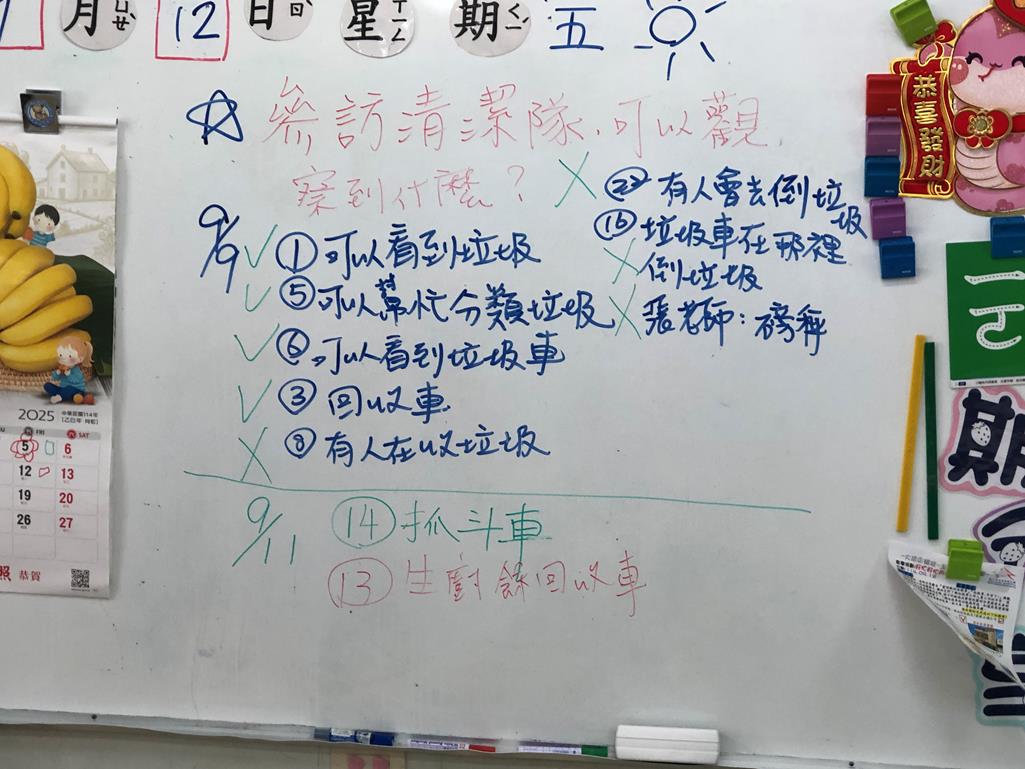 月ㄩㄝ
12
日ㄖ
星ㄒㄧㄥ
期ㄑㄧ
五
參訪清潔隊,可以觀
察到什麼?
9/9
① 可以看到垃圾
⑤ 可以幫忙分類垃圾
⑥ 可以看到垃圾車
③ 回收車
⑧ 有人在收垃圾
有人會去倒垃圾
⑯ 垃圾車在那裡
倒垃圾
張老師:磅秤
9/11
⑭ 抓斗車
⑬ 生廚餘回收車
恭喜發財
2025 中華民國114年
FRI SAT
5 6
12 13
19 20
26 27
恭賀
期